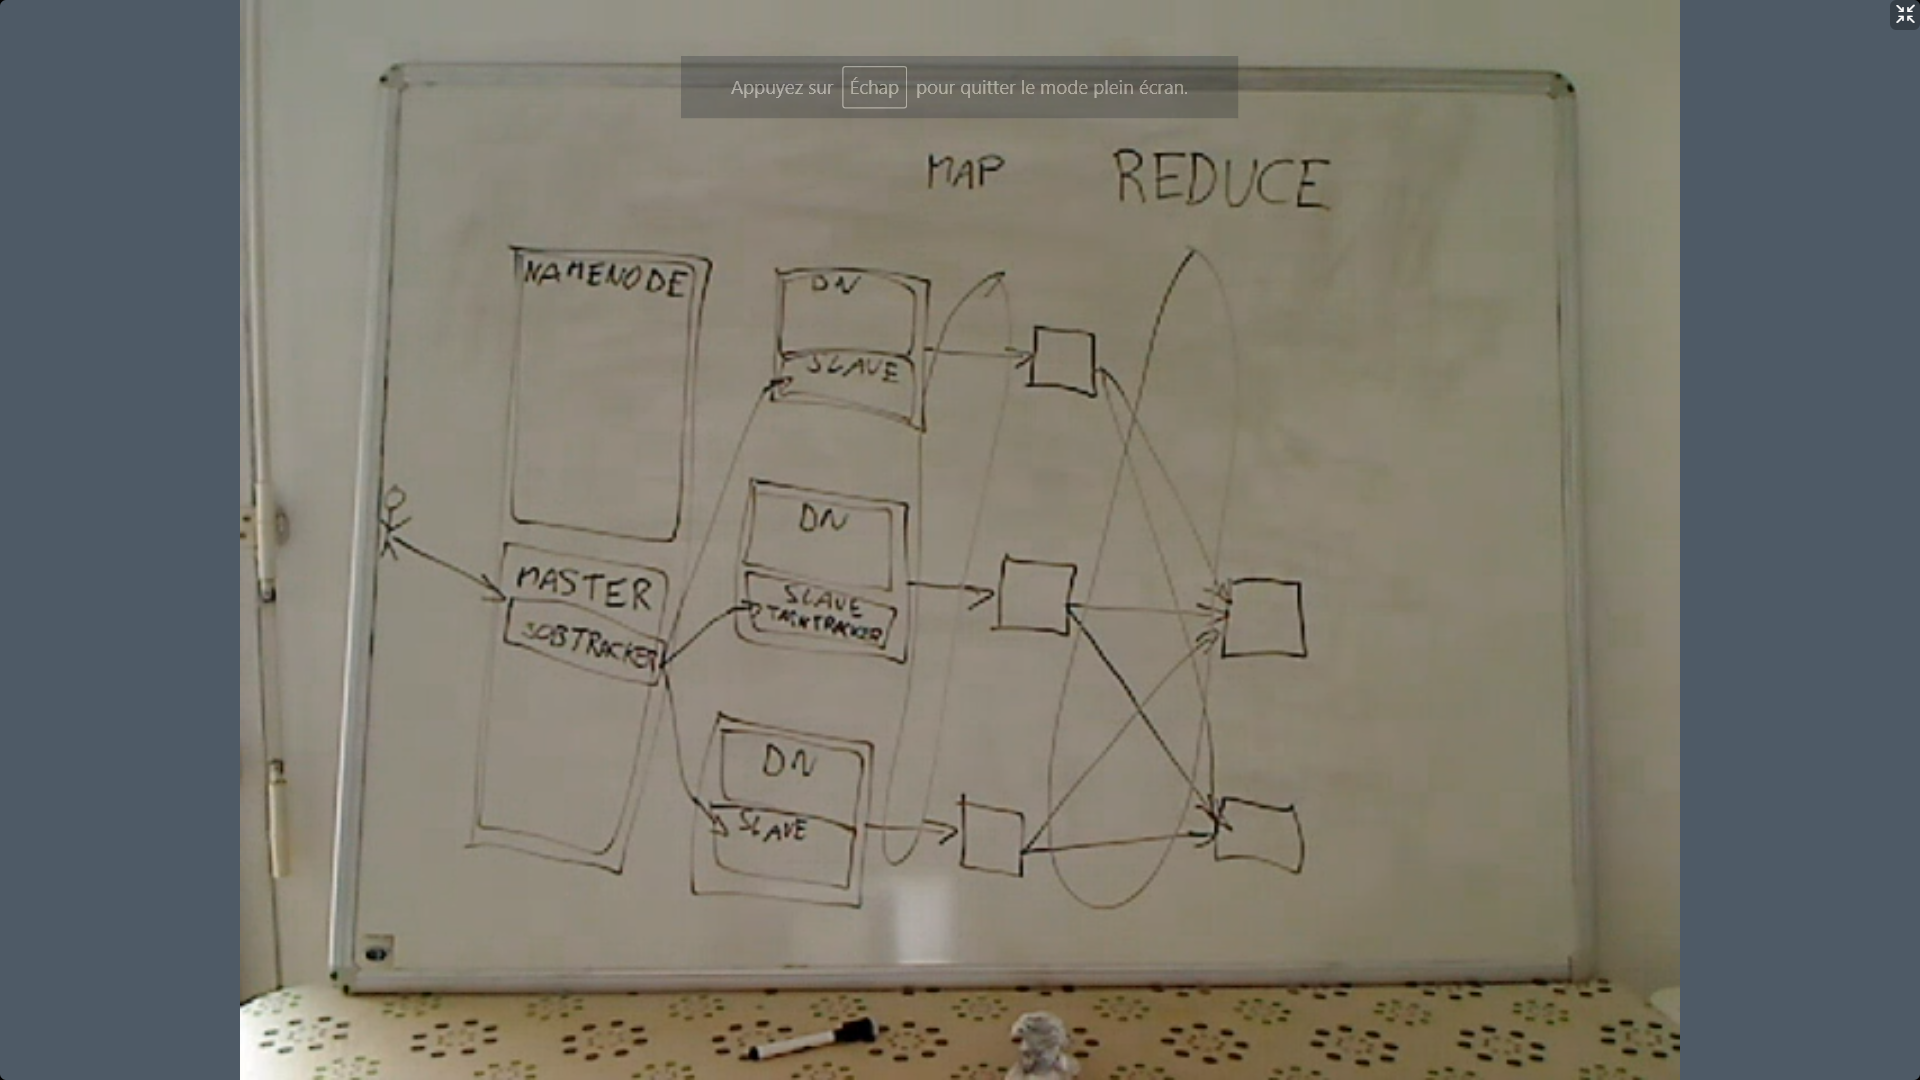 Appuyez sur Échap pour quitter le mode plein écran.
MAP
REDUCE
NAMENODE
MASTER
JOBTRACKER
DN
SLAVE
DN
SLAVE
TASKTRACKER
DN
SLAVE